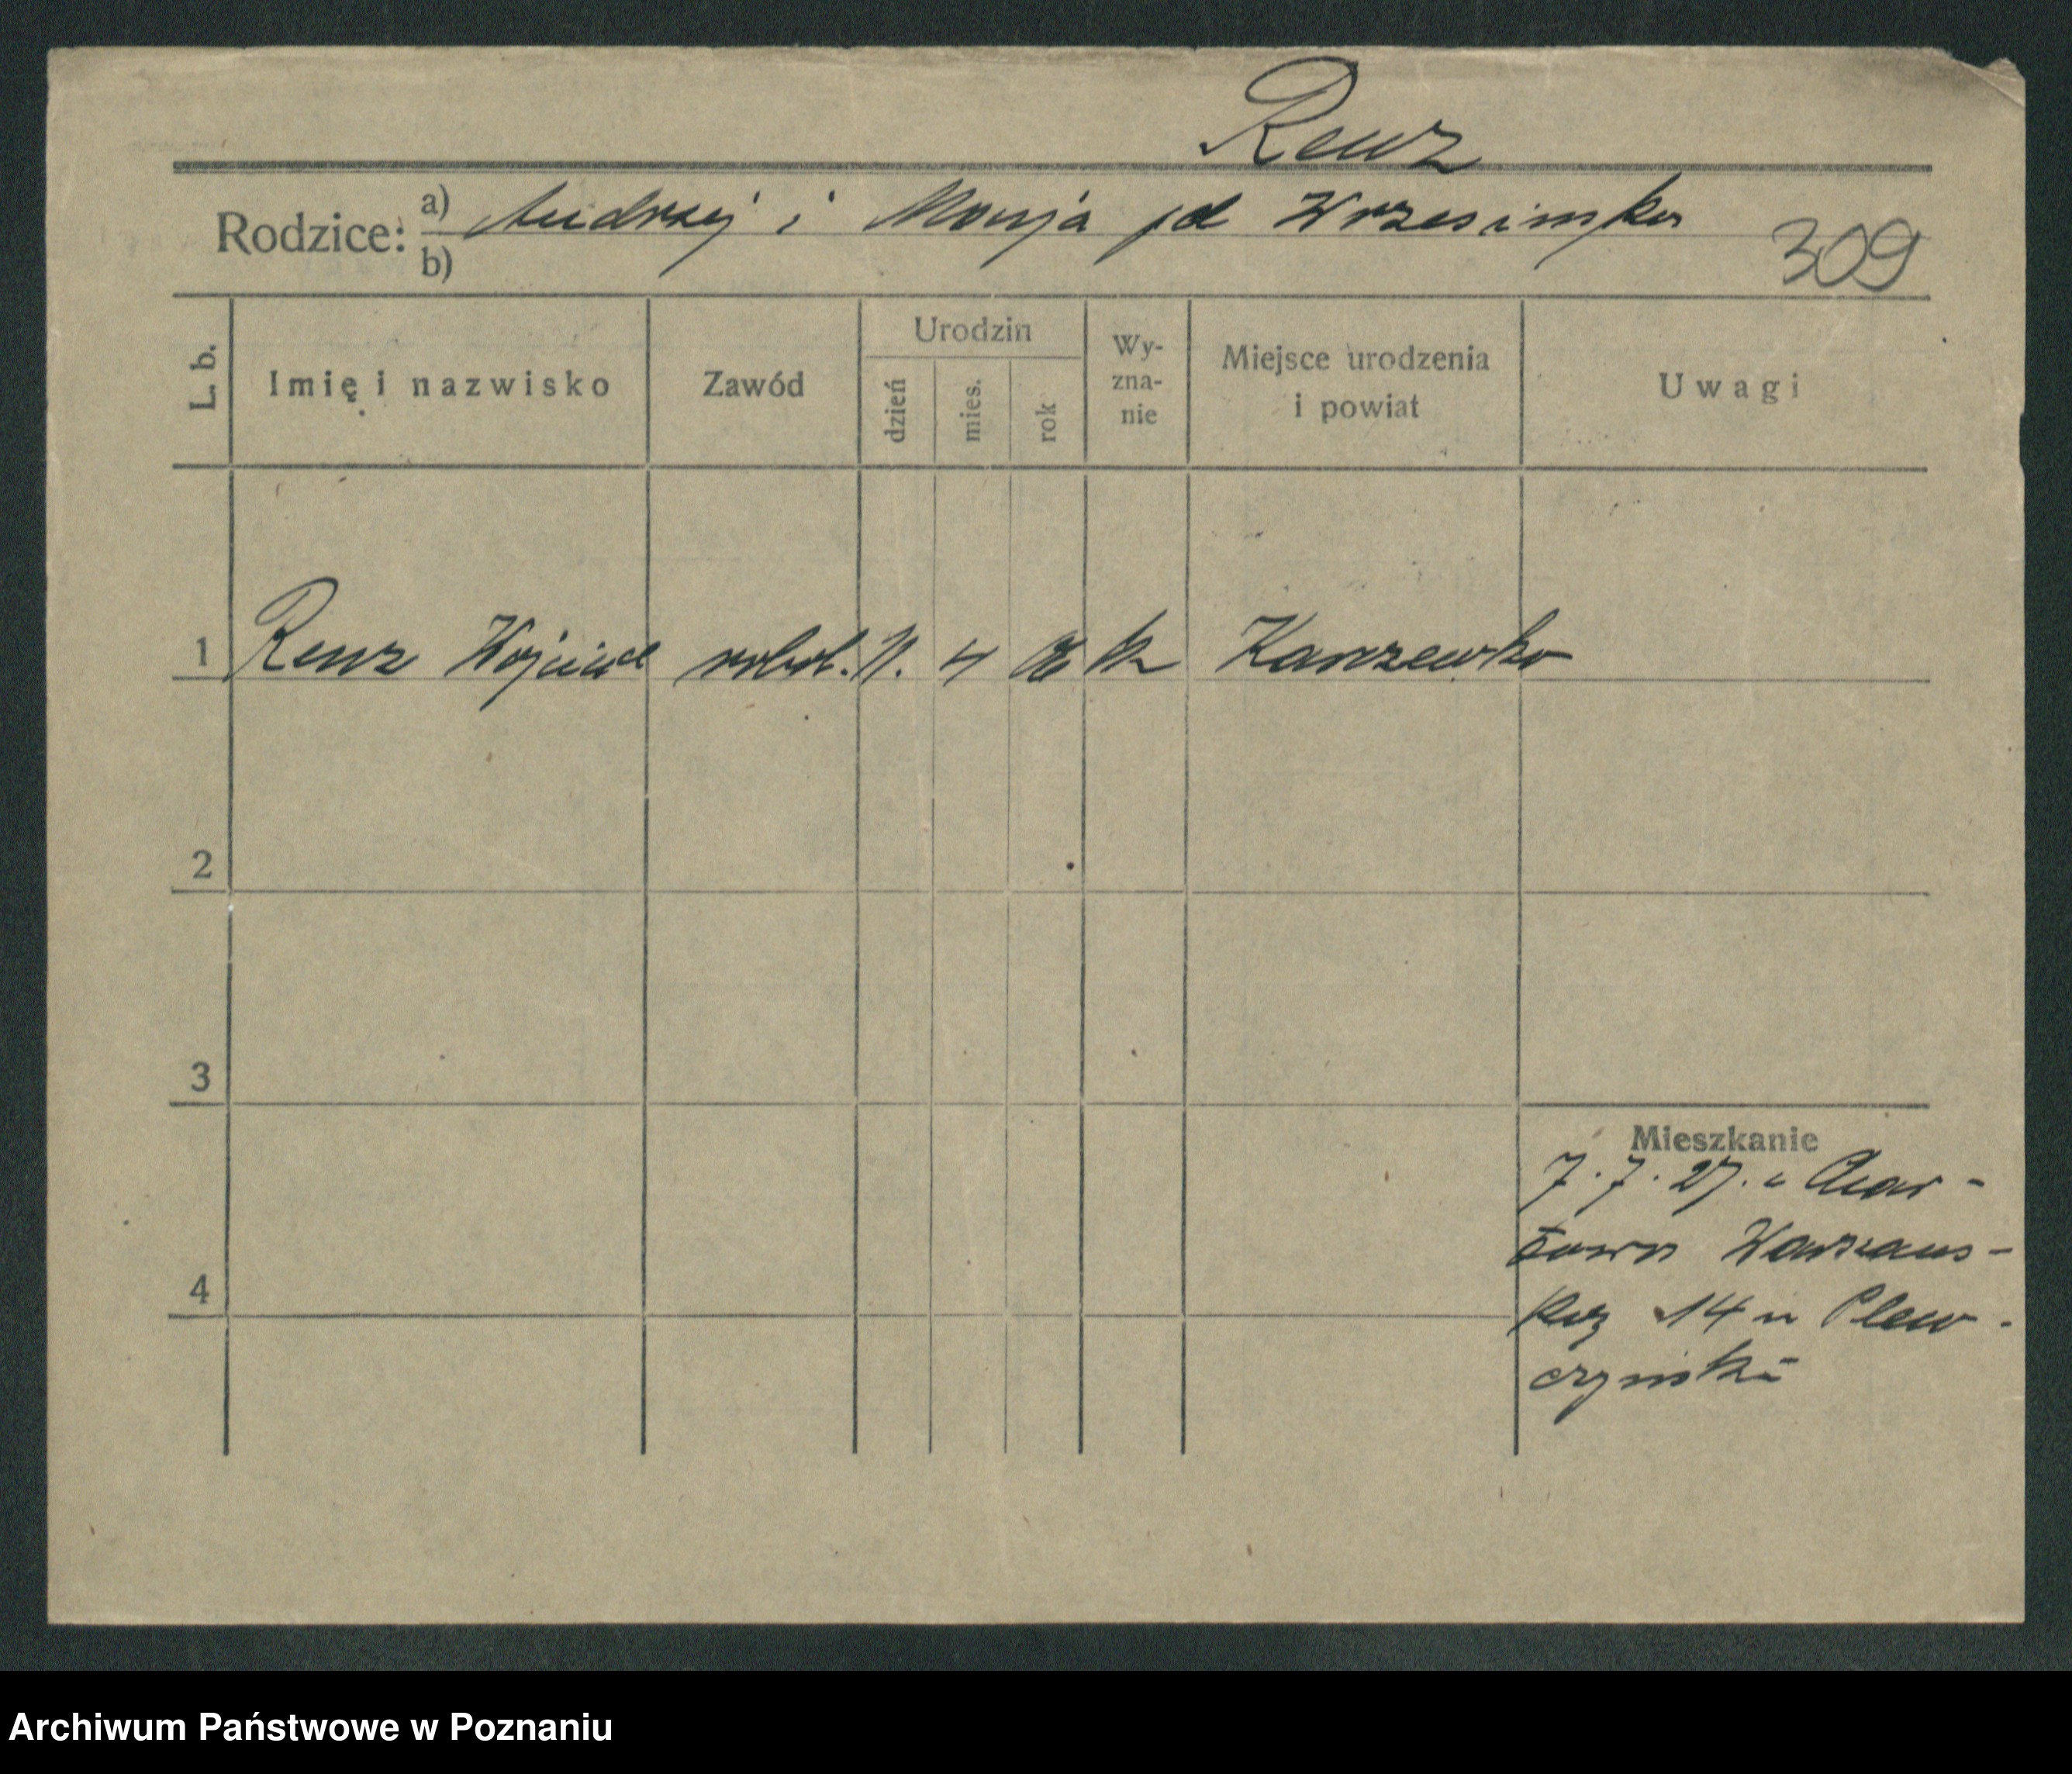 Renz
Rodzice: a) Andrzej i Marja jd Wrzesińska
b)
309
L. b. Imię i nazwisko Zawód Urodzin dzień mies. rok Wy-zna-nie Miejsce urodzenia i powiat Uwagi
1 Renz Wojciech robot. 11. 4 k Karczewko
2
3
Mieszkanie
7. 7. 27. Char-
towo Warszaws-
ka 14 u Plew-
4
czyński
Archiwum Państwowe w Poznaniu